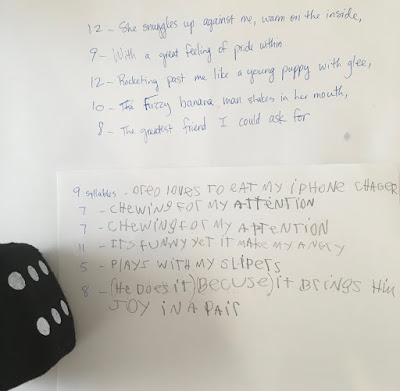 12 - She snuggles up against me, warm on the inside,
9 - With a great feeling of pride within
12 - Rocketing past me like a young puppy with glee,
10 - The fuzzy banana man shakes in her mouth,
8 - The greatest friend I could ask for
9 syllables - OREO LOVES TO EAT MY iPHONE CHAGER
7 - CHEWING FOR MY ATTENTION
7 - CHEWING FOR MY ATTENTION
11 - ITS FUNNY YET IT MAKE MY ANGRY
5 - PLAYS WITH MY SLIPERS
8 - (HE DOES IT) BECUSE) iT BRINGS HIM
JOY iN A PAIR